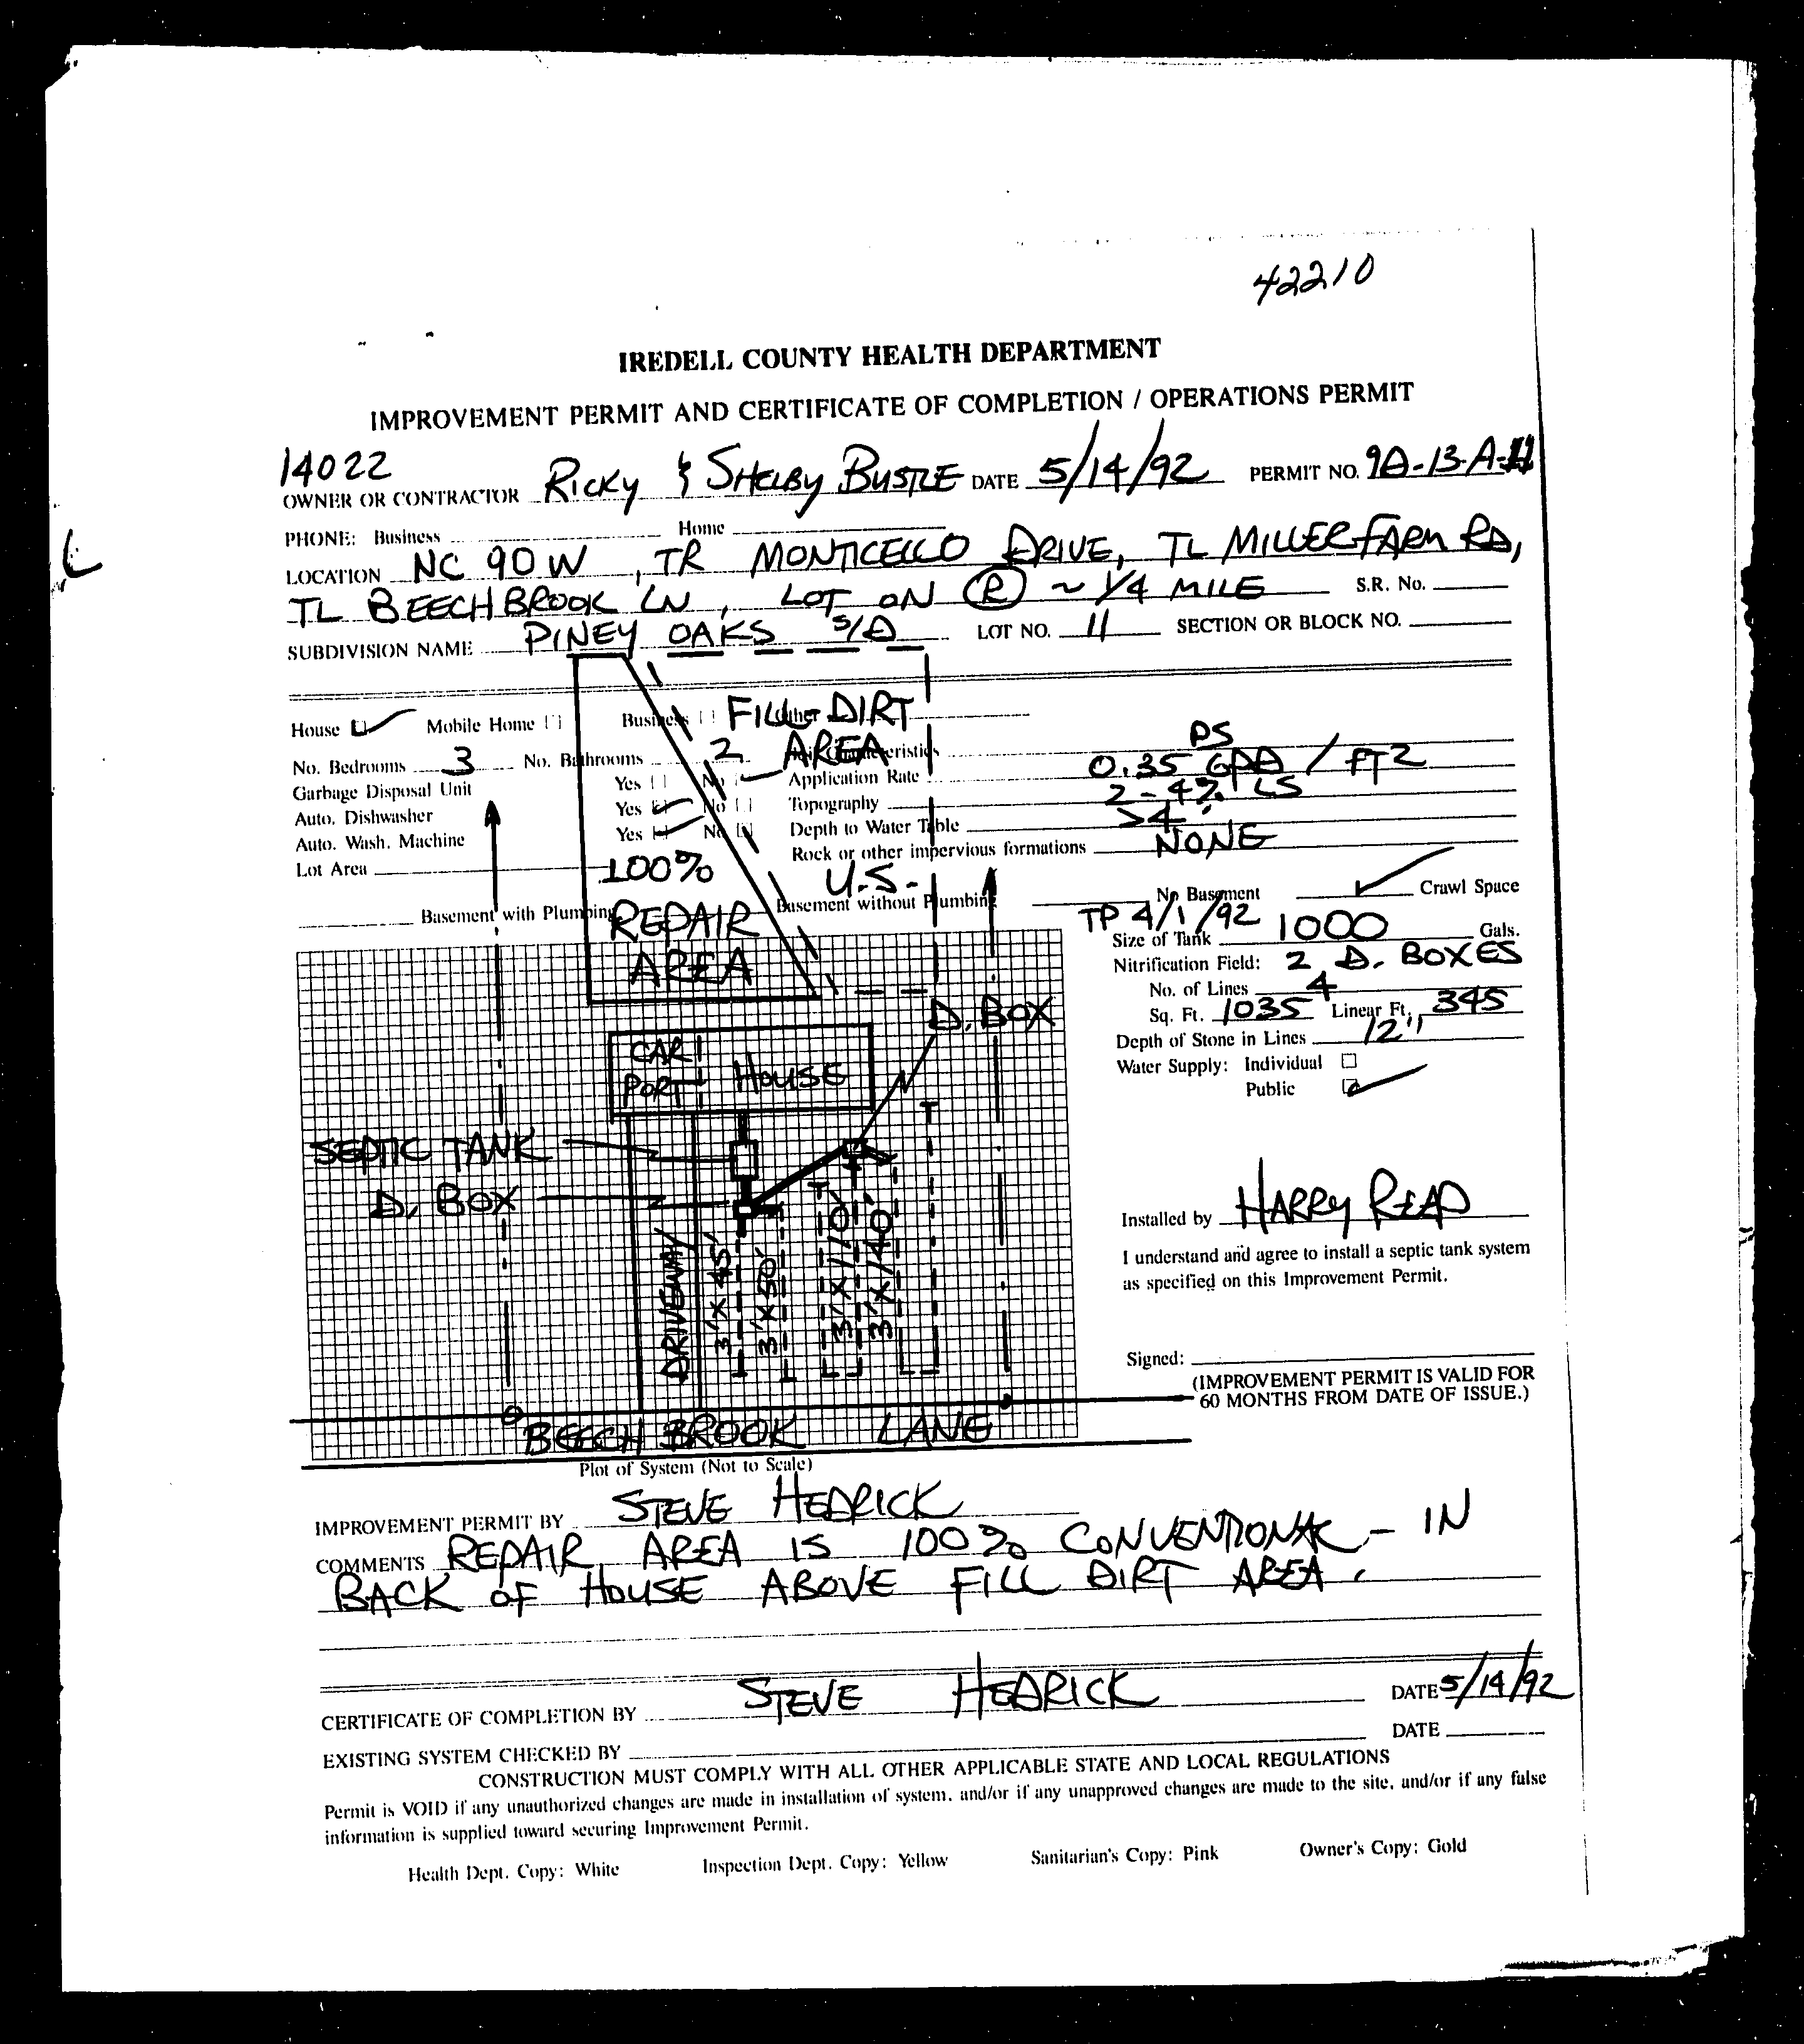 42210
IREDELL COUNTY HEALTH DEPARTMENT
IMPROVEMENT PERMIT AND CERTIFICATE OF COMPLETION / OPERATIONS PERMIT
14022
OWNER OR CONTRACTOR RICKY & SHELBY BUSTLE DATE 5/14/92 PERMIT NO. 9A-13-A-11
PHONE: Business Home
LOCATION NC 90 W, TR MONTICELLO DRIVE, TL MILLER FARM RD,
TL BEECHBROOK LN, LOT ON R ~ 1/4 MILE S.R. No.
SUBDIVISION NAME PINEY OAKS S/D LOT NO. 11 SECTION OR BLOCK NO.
House ✓ Mobile Home Business Other
FILL DIRT
AREA
No. Bedrooms 3 No. Bathrooms 2 Soil Characteristics PS
Garbage Disposal Unit Yes No ✓ Application Rate 0.35 GPD / FT2
Auto. Dishwasher Yes ✓ No Topography 2-4% LS
Auto. Wash. Machine Yes ✓ No Depth to Water Table >4'
Lot Area Rock or other impervious formations NONE
100%
REPAIR
AREA
U.S.
Basement with Plumbing Basement without Plumbing No Basement ✓ Crawl Space
TP 4/1/92
Size of Tank 1000 Gals.
Nitrification Field: 2 D. BOXES
No. of Lines 4
Sq. Ft. 1035 Linear Ft. 345
Depth of Stone in Lines 12"
Water Supply: Individual
Public ✓
D. BOX
CAR PORT
HOUSE
SEPTIC TANK
D. BOX
DRIVEWAY
3' X 45'
3' X 50'
3' X 110'
3' X 140'
BEECH BROOK LANE
Plot of System (Not to Scale)
Installed by HARRY READ
I understand and agree to install a septic tank system
as specified on this Improvement Permit.
Signed:
(IMPROVEMENT PERMIT IS VALID FOR
60 MONTHS FROM DATE OF ISSUE.)
IMPROVEMENT PERMIT BY STEVE HEDRICK
COMMENTS REPAIR AREA IS 100% CONVENTIONAL - IN
BACK OF HOUSE ABOVE FILL DIRT AREA.
CERTIFICATE OF COMPLETION BY STEVE HEDRICK DATE 5/14/92
EXISTING SYSTEM CHECKED BY DATE
CONSTRUCTION MUST COMPLY WITH ALL OTHER APPLICABLE STATE AND LOCAL REGULATIONS
Permit is VOID if any unauthorized changes are made in installation of system, and/or if any unapproved changes are made to the site, and/or if any false
information is supplied toward securing Improvement Permit.
Health Dept. Copy: White Inspection Dept. Copy: Yellow Sanitarian's Copy: Pink Owner's Copy: Gold